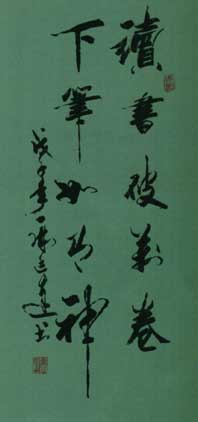 讀書破萬卷
下筆如有神
戊子年書